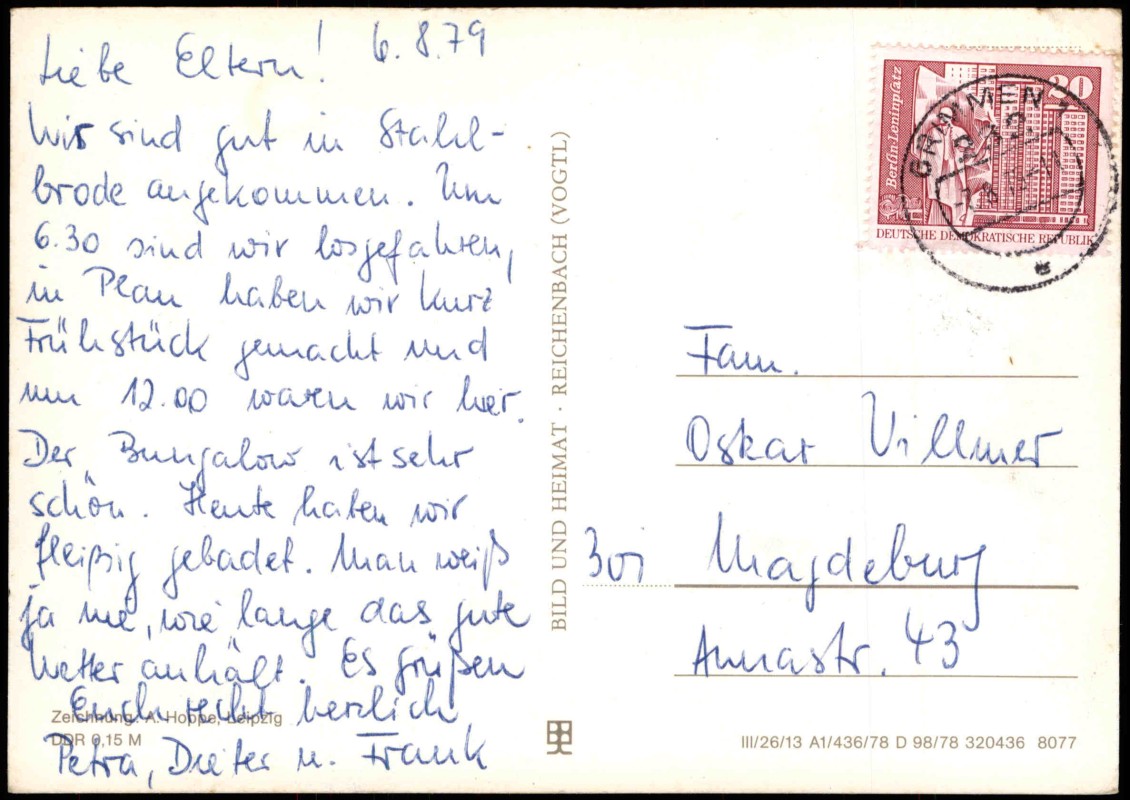 Liebe Eltern! 6.8.79
Wir sind gut in Stahl-
brode angekommen. Um
6.30 sind wir losgefahren,
in Plau haben wir kurz
Frühstück gemacht und
um 12.00 waren wir hier.
Der Bungalow ist sehr
schön. Heute haben wir
fleißig gebadet. Man weiß
ja nie, wie lange das gute
Wetter anhält. Es grüßen
Euch recht herzlich
Petra, Dieter u. Frank
Zeichnung: A. Hoppe, Leipzig
DDR 0,15 M
BILD UND HEIMAT · REICHENBACH (VOGTL)
Berlin-Leninplatz
20
DEUTSCHE DEMOKRATISCHE REPUBLIK
GRIMMEN 1
Fam.
Oskar Villmer
301 Magdeburg
Annastr. 43
III/26/13 A1/436/78 D 98/78 320436 8077